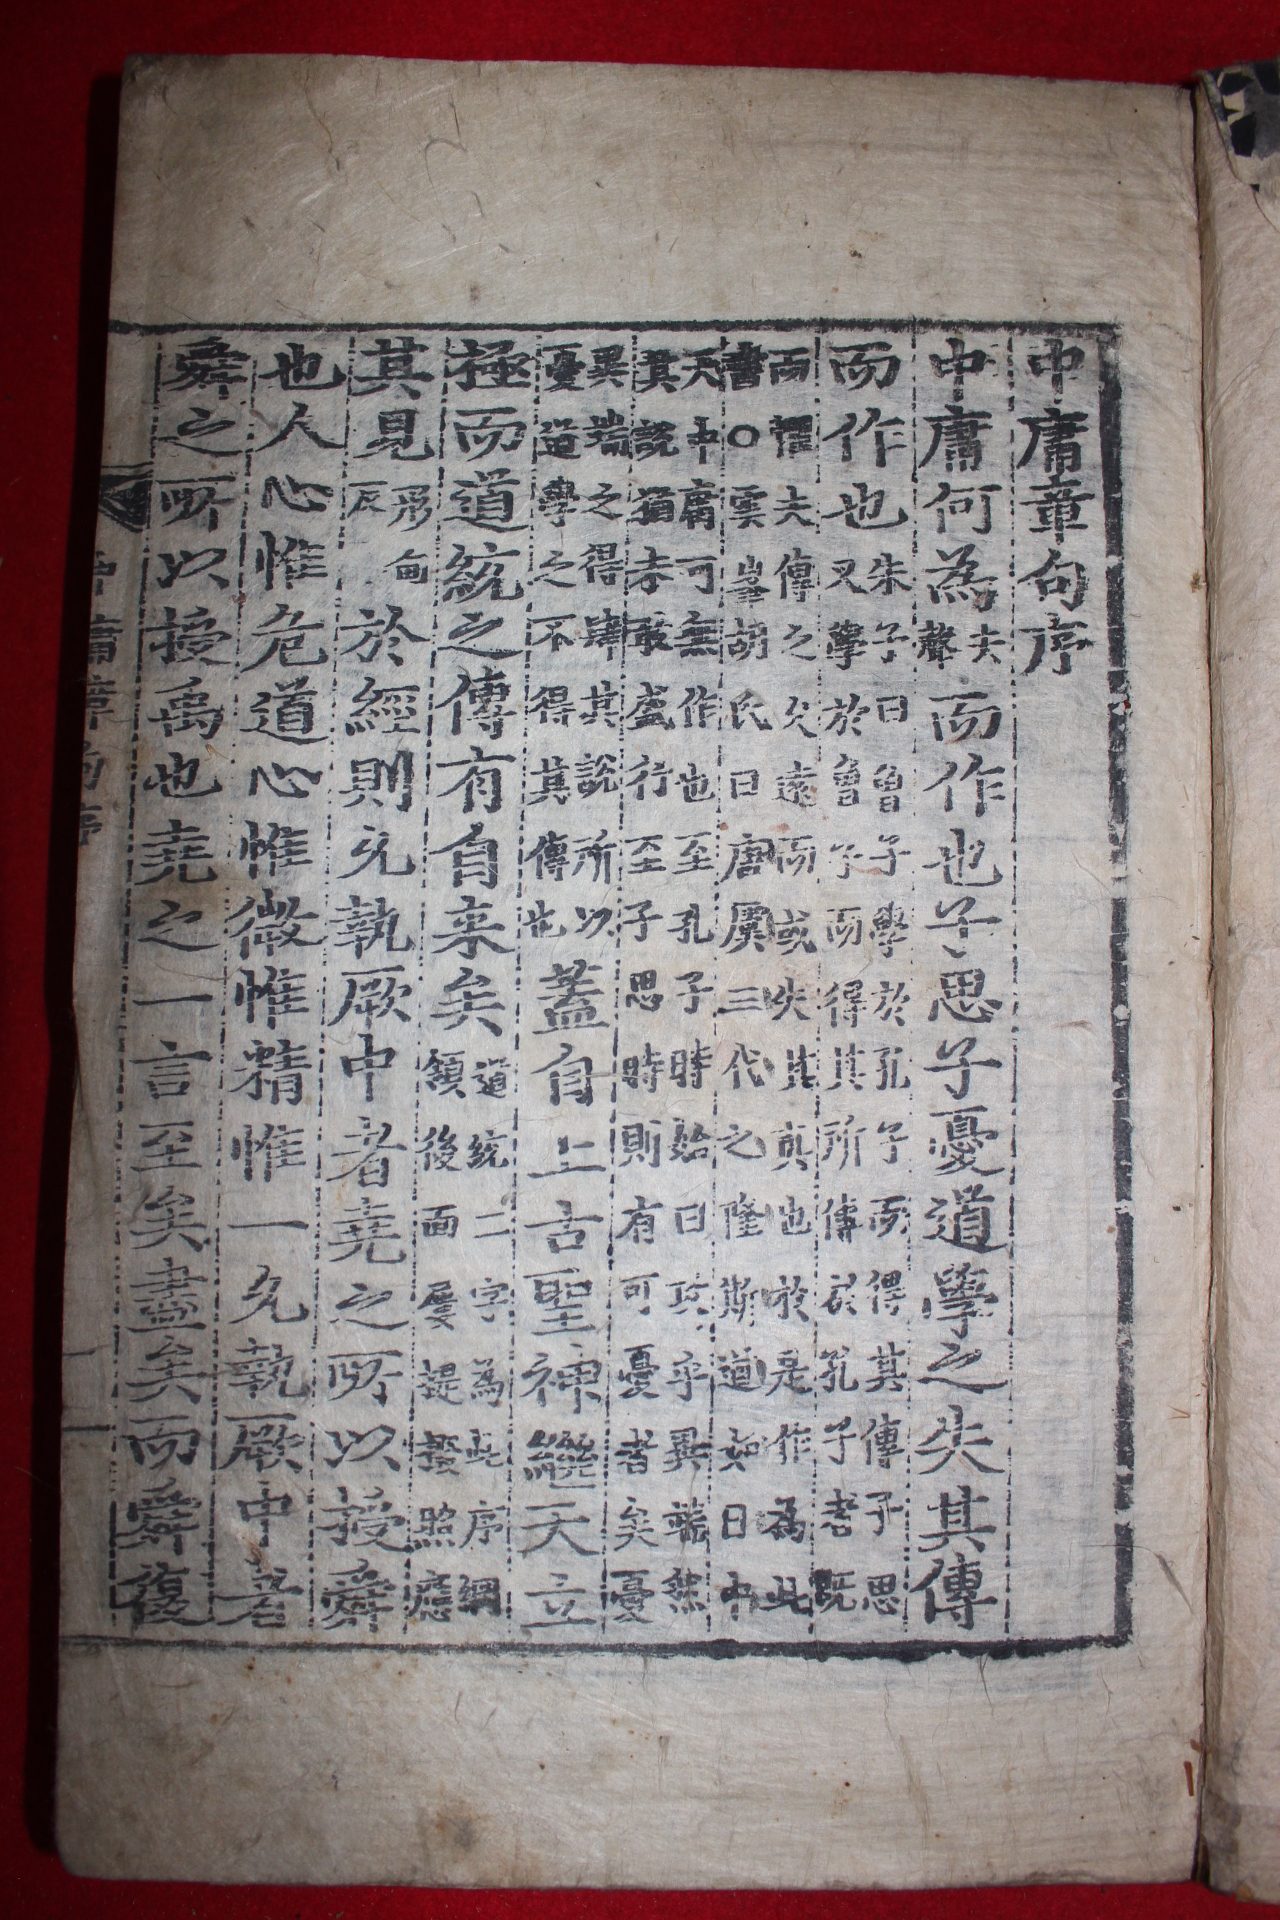 中庸章句序
中庸何為
夫
聲
而作也子思子憂道學之失其傳
而作也
朱子曰曾子學於孔子而得其傳子思
又學於曾子而得其所傳於孔子者既
而懼夫傳之久遠而或失其真也於是作為此
書○雲峯胡氏曰唐虞三代之隆斯道如日中
天中庸可無作也至孔子時始曰攻乎異端然
其說猶未敢盛行至子思時則有可憂者矣憂
異端之得肆其說所以
憂道學之不得其傳也
蓋自上古聖神繼天立
極而道統之傳有自来矣
道統二字為此序綱
領後面屢提掇照應
其見
形甸
反
於經則允執厥中者堯之所以授舜
也人心惟危道心惟微惟精惟一允執厥中者
舜之所以授禹也堯之一言至矣盡矣而舜復
中庸章句序
一